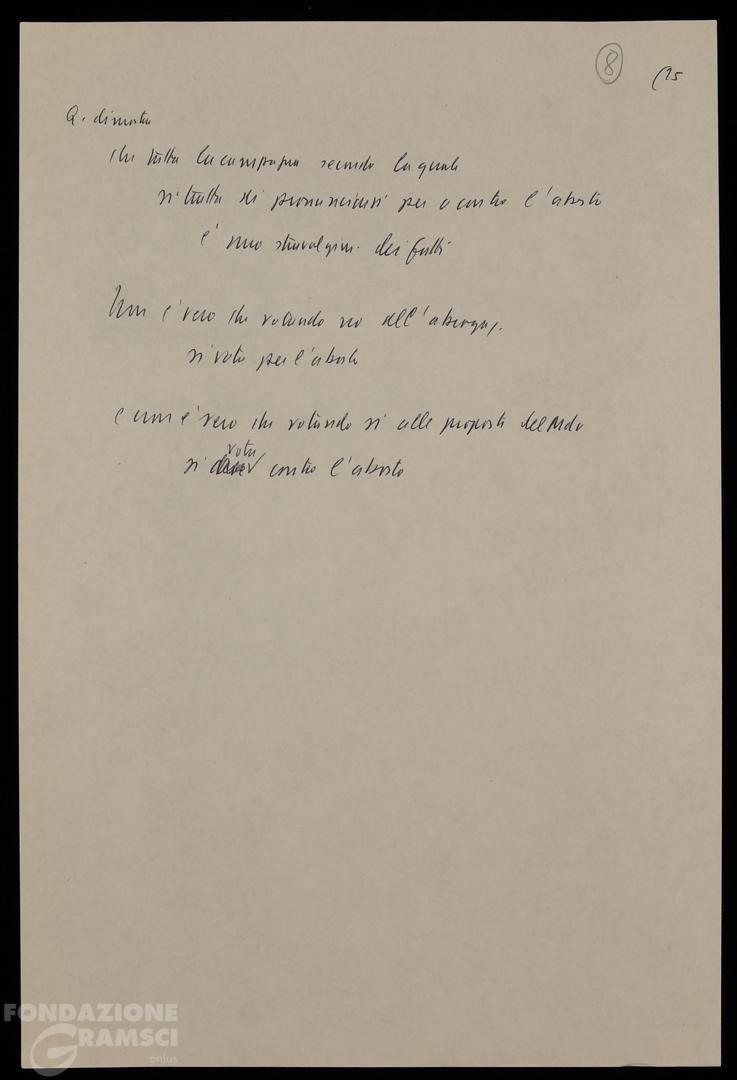 8
(15
Q. dimostra
che tutta la campagna secondo la quale
si tratta di pronunciarsi per o contro l'aborto
è uno stravolgim. dei fatti
Non è vero che votando no all'abrogaz.
si vota per l'aborto
e non è vero che votando sì alle proposte del Mdv
vota
si contro l'aborto
FONDAZIONE
GRAMSCI
onlus